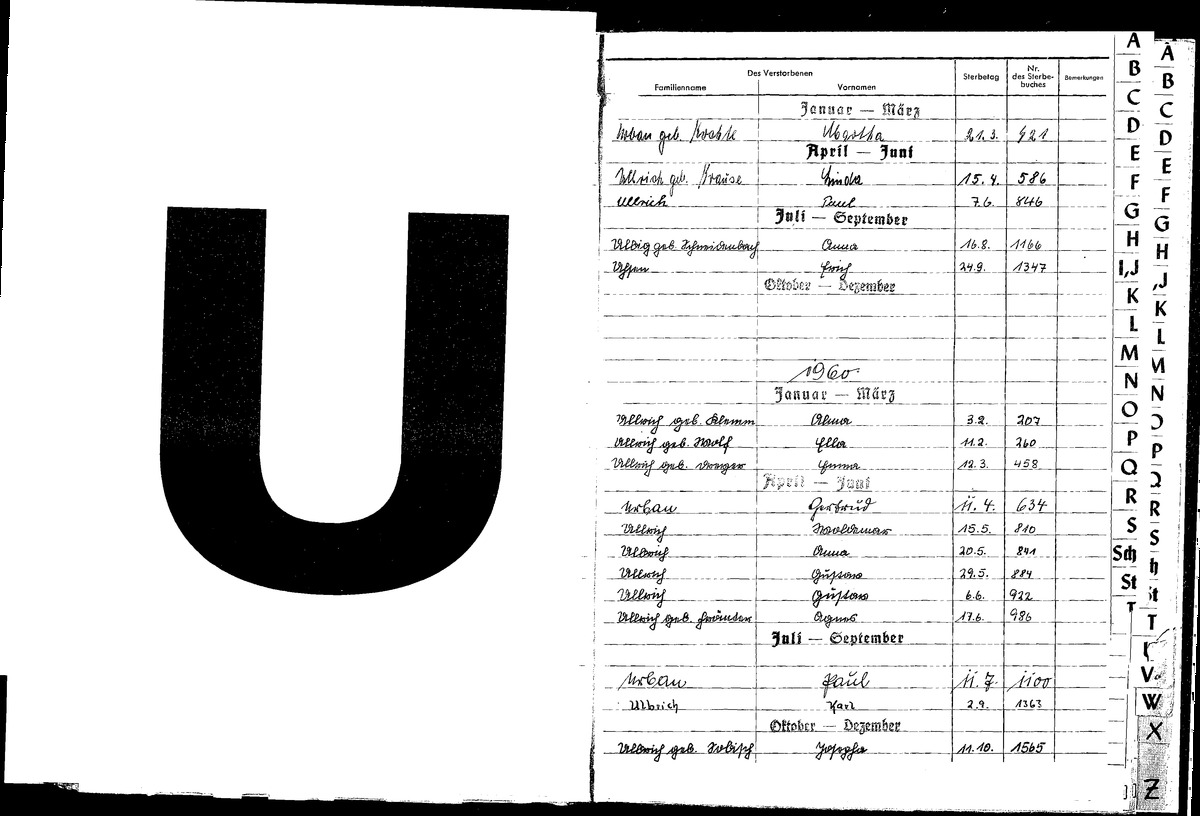 U
Des Verstorbenen
Familienname Vornamen Sterbetag Nr. des Sterbebuches Bemerkungen
Januar — März
Urban geb. Martha 21.3. 421
April — Juni
Ullrich geb. Krause Linda 15.4. 586
Ullrich Paul 7.6. 846
Juli — September
Ulbig geb. Schmeidenbach Anna 16.8. 1166
Erich 24.9. 1347
Oktober — Dezember
1960
Januar — März
Ullrich geb. Klemm Alma 3.2. 207
Ullrich geb. Wolf Ella 11.2. 260
Ullrich geb. Emma 12.3. 458
April — Juni
Urban Gertrud 11.4. 634
Ullrich Woldemar 15.5. 810
Ullrich Anna 20.5. 841
Ullrich Gustav 29.5. 884
Ullrich Gustav 6.6. 922
Ullrich geb. Agnes 17.6. 986
Juli — September
Urban Paul 11.7. 1100
Ulbrich Karl 2.9. 1363
Oktober — Dezember
Ullrich geb. Josepha 11.10. 1565
A
B
C
D
E
F
G
H
I,J
K
L
M
N
O
P
Q
R
S
Sch
St
T
A
B
C
D
E
F
G
H
,J
K
L
M
N
O
P
Q
R
S
h
t
T
V
W
X
Z